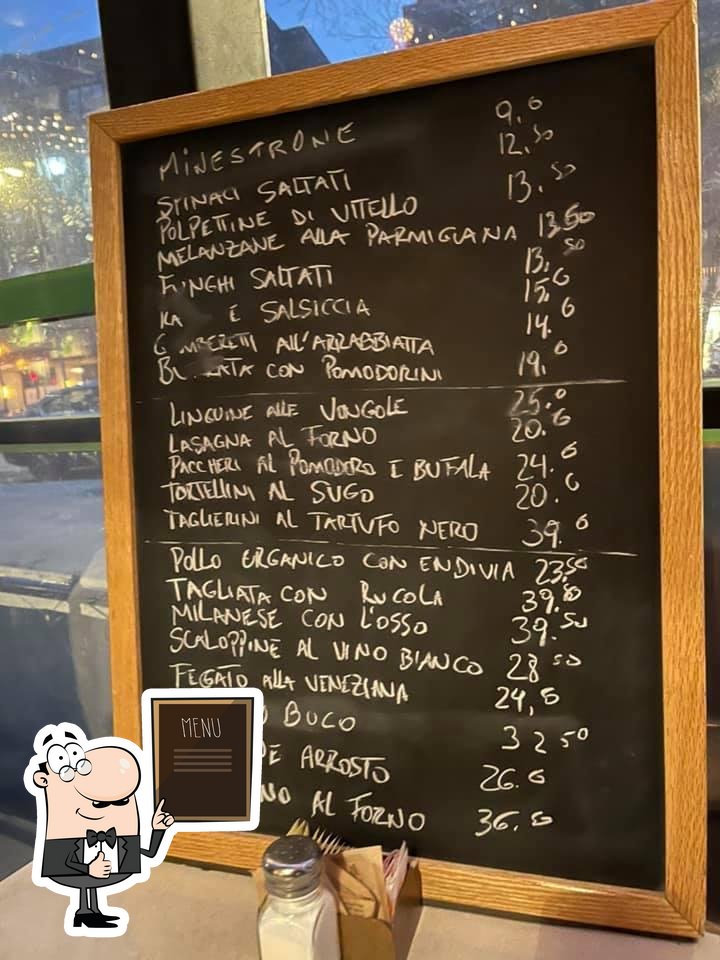 MINESTRONE 9.0
SPINACI SALTATI 12.50
POLPETTINE DI VITELLO 13.50
MELANZANE ALLA PARMIGIANA 13.50
FUNGHI SALTATI 13.50
E SALSICCIA 15.0
ALL'ARRABBIATTA 14.0
CON POMODORINI 19.0
LINGUINE ALLE VONGOLE 25.0
LASAGNA AL FORNO 20.0
PACCHERI AL POMODORO E BUFALA 24.0
TORTELLINI AL SUGO 20.0
TAGLIERINI AL TARTUFO NERO 39.0
POLLO ORGANICO CON ENDIVIA 23.50
TAGLIATA CON RUCOLA 39.50
MILANESE CON L'OSSO 39.50
SCALOPPINE AL VINO BIANCO 28 50
FEGATO ALLA VENEZIANA 24,0
BUCO 32 50
ARROSTO 26.0
AL FORNO 36.0
MENU